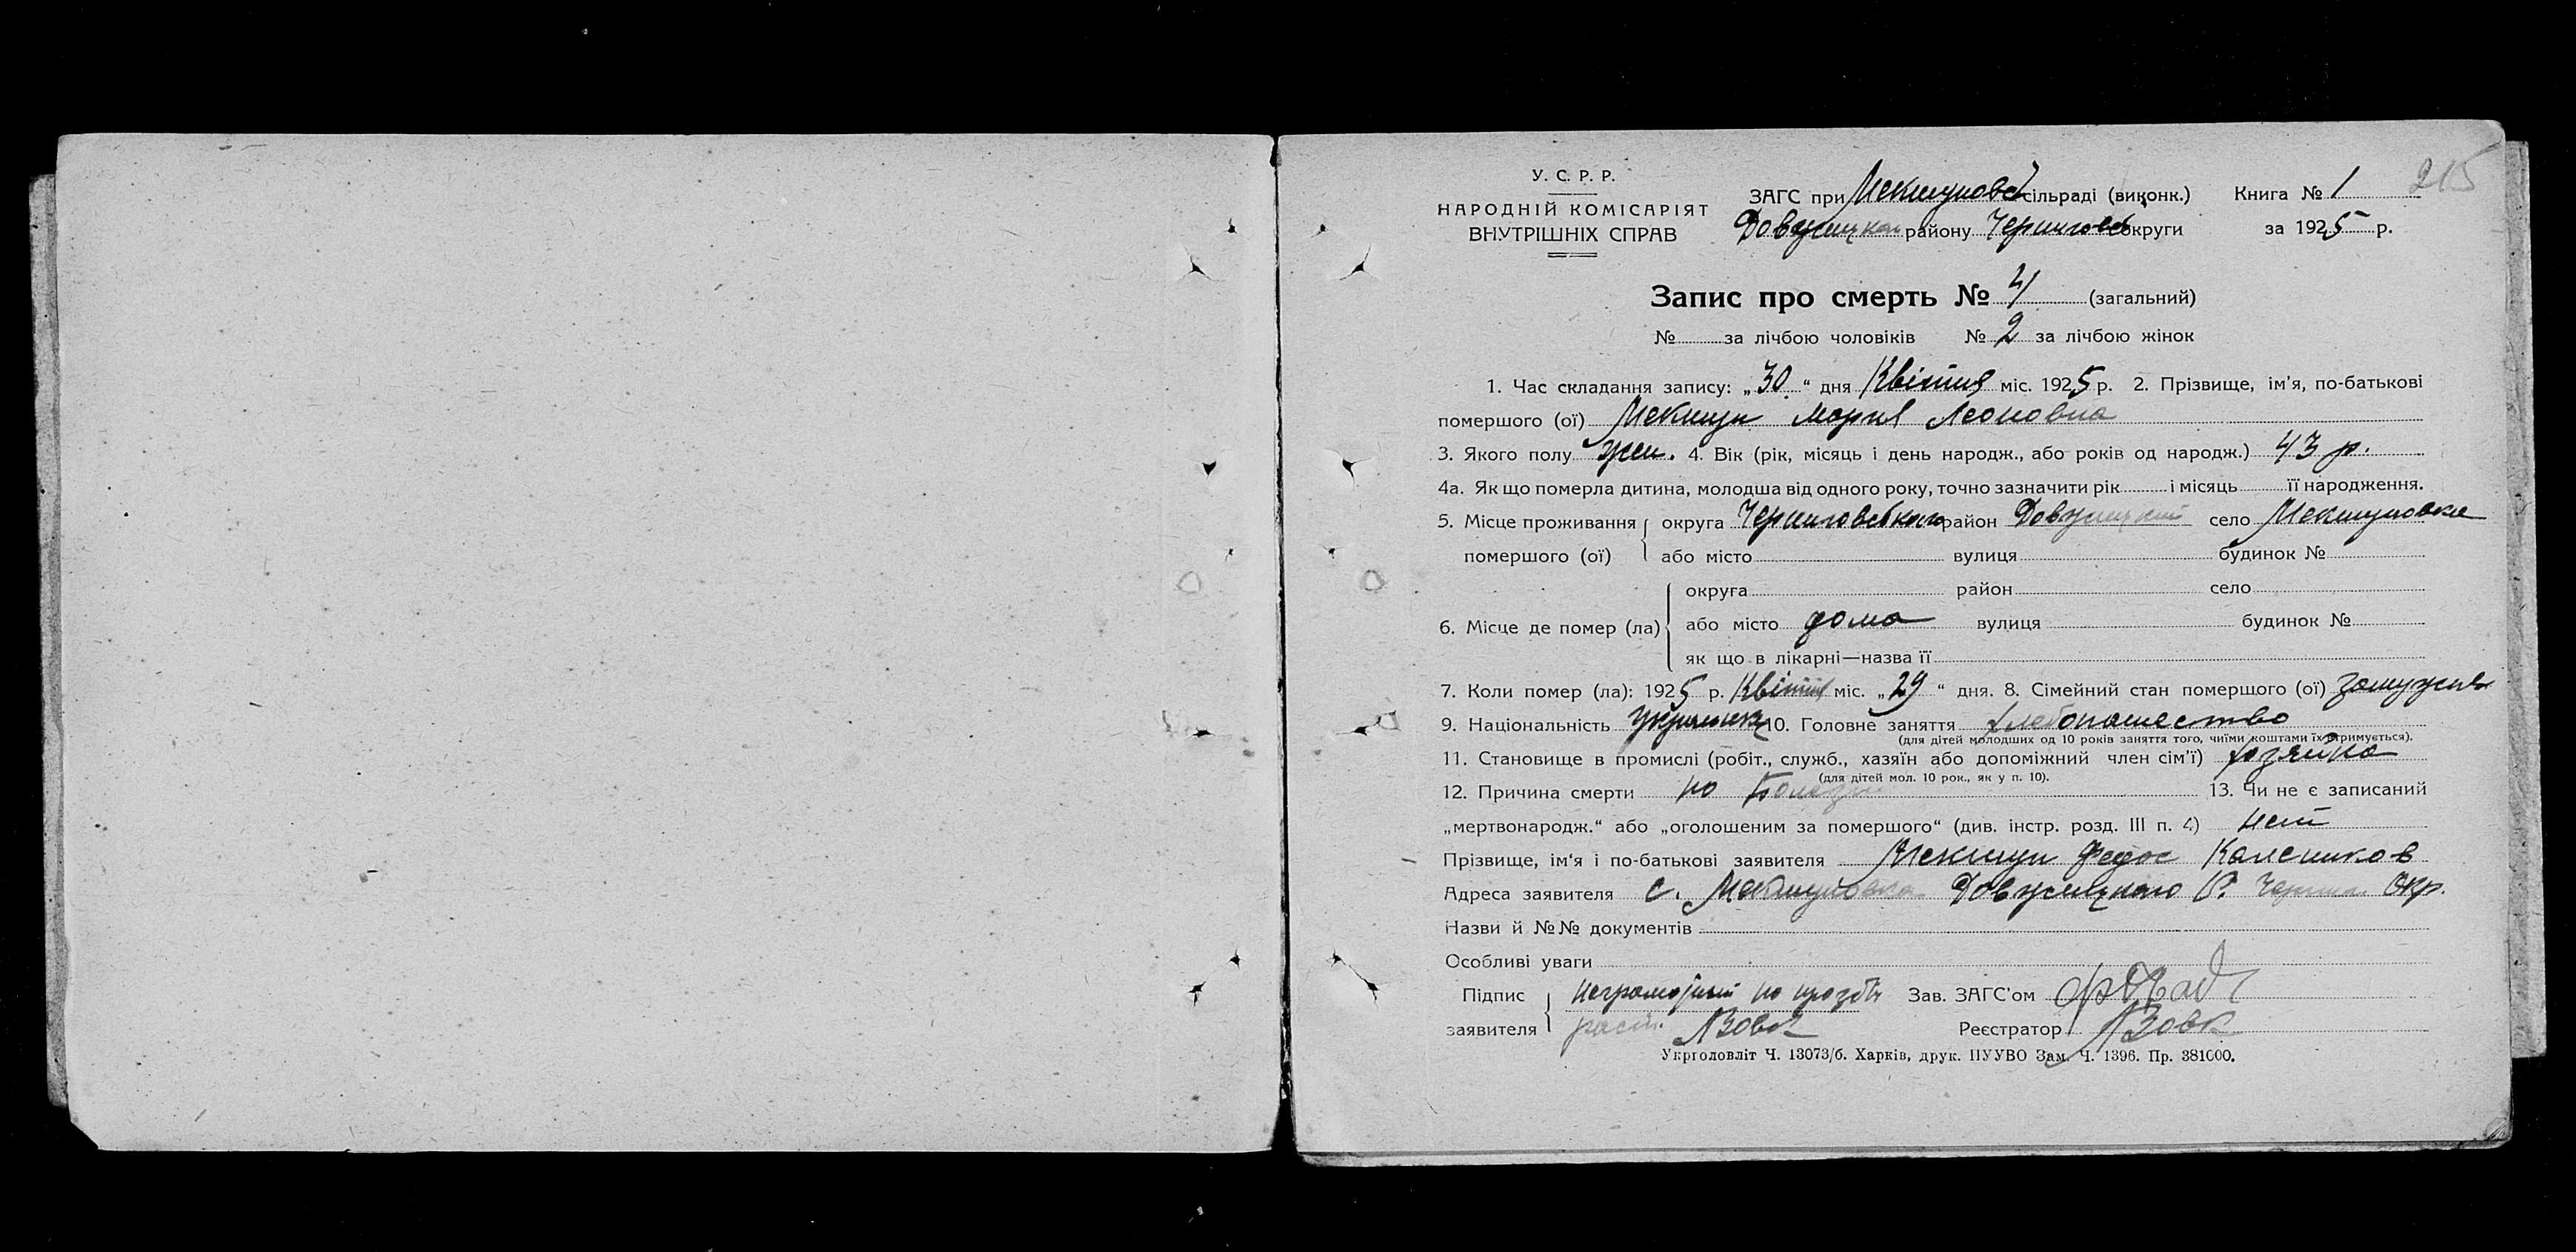 215
У. С. Р. Р.
НАРОДНІЙ КОМІСАРІЯТ
ВНУТРІШНІХ СПРАВ
ЗАГС при Мекшуновс сільраді (виконк.) Книга № 1
Довжицком району Черниговс округи за 1925 р.
Запис про смерть № 4 (загальний)
№ за лічбою чоловіків № 2 за лічбою жінок
1. Час складання запису: „30“ дня Квітня міс. 1925 р. 2. Прізвище, ім'я, по-батькові
помершого (ої) Мекшун Мария Леоновна
3. Якого полу жен. 4. Вік (рік, місяць і день народж., або років од народж.) 43 р.
4а. Як що померла дитина, молодша від одного року, точно зазначити рік і місяць її народження.
5. Місце проживання округа Черниговського район Довжицкий село Мекшуновка
помершого (ої) або місто вулиця будинок №
округа район село
6. Місце де помер (ла) або місто дома вулиця будинок №
як що в лікарні—назва її
7. Коли помер (ла): 1925 р. Квітня міс. „29“ дня. 8. Сімейний стан помершого (ої) замужня
9. Національність 10. Головне заняття хлебопашество
(для дітей молодших од 10 років заняття того, чиїми коштами їх утримується).
11. Становище в промислі (робіт., служб., хазяїн або допоміжний член сім'ї) хозяйка
(для дітей мол. 10 рок., як у п. 10).
12. Причина смерти по Болезни 13. Чи не є записаний
„мертвонародж.“ або „оголошеним за помершого“ (див. інстр. розд. III п. 4) нет
Прізвище, ім'я і по-батькові заявителя Мекшун Федос Калеников
Адреса заявителя с. Мекшуновка Довжицкого Р. Черниг Окр.
Назви й №№ документів
Особливі уваги
Підпис неграмотний по прозбі Зав. ЗАГС'ом
заявителя расп. ЛЗовк Реєстратор ЛЗовк
Укрголовліт Ч. 13073/б. Харків, друк. ПУУВО Зам. Ч. 1396. Пр. 381000.